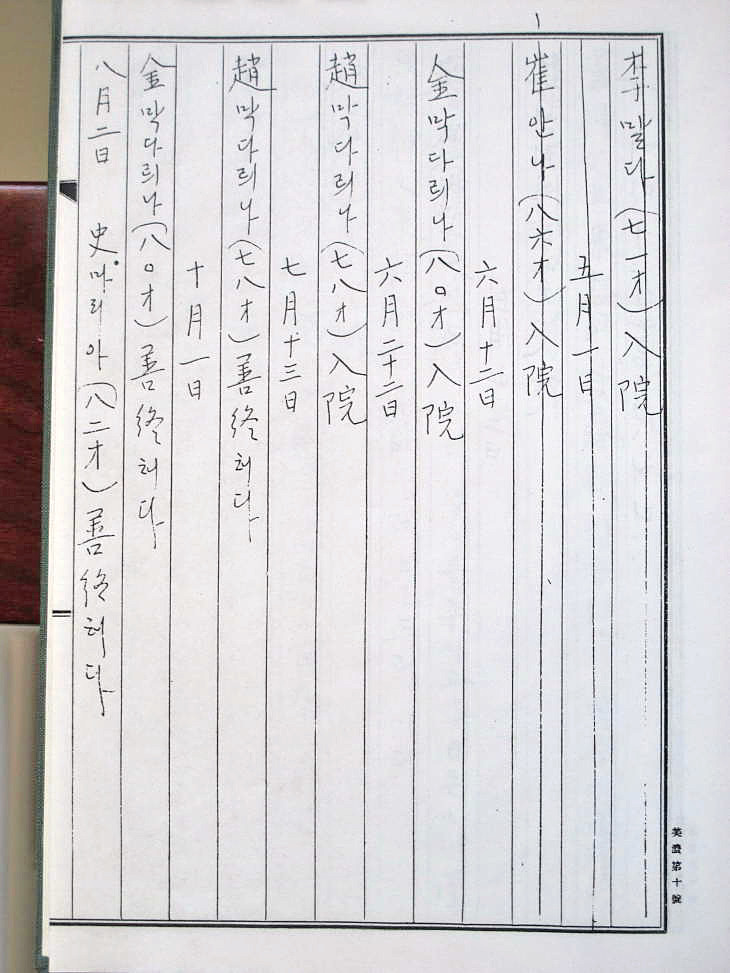 李말다(七一才)入院
五月一日
崔안나(八六才)入院
六月十二日
金막다릐나(八〇才)入院
六月二十二日
趙막다릐나(七八才)入院
七月十三日
趙막다릐나(七八才)善終하다
十月一日
金막다릐나(八〇才)善終허다
八月二日 史마리아(八二才)善終허다
第十號